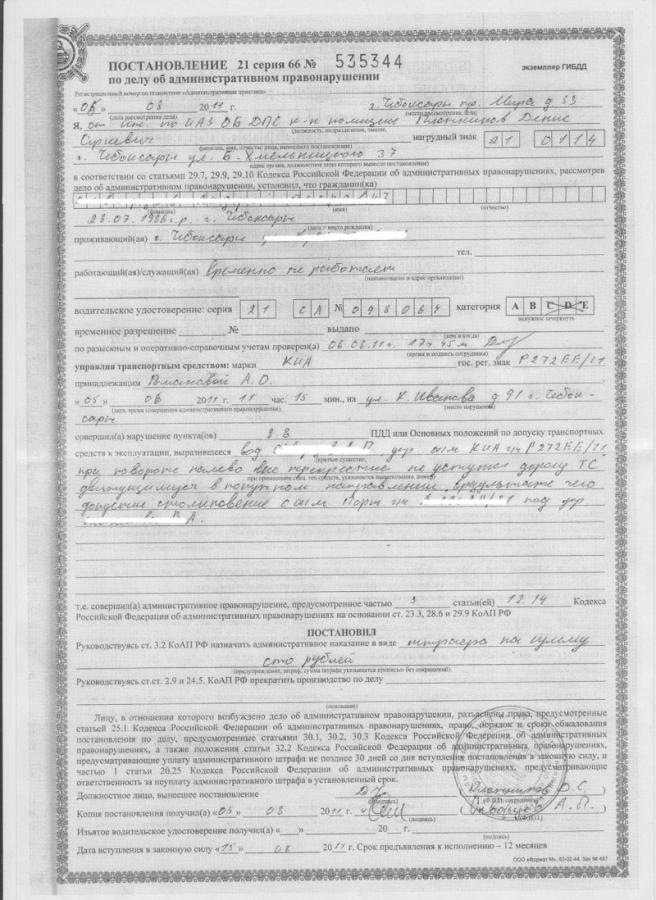 ПОСТАНОВЛЕНИЕ 21 серия 66 № 535344
экземпляр ГИБДД
по делу об административном правонарушении
Регистрационный номер по подсистеме «Административная практика»
«05» 08 2011 г. г. Чебоксары пр. Мира д 33
(дата рассмотрения дела) (место рассмотрения дела)
Я, ст. Инс. по ИАЗ ОБ ДПС к-н полиции Плотников Денис
(должность, подразделение, звание,
Сергеевич нагрудный знак 21 0114
фамилия, имя, отчество лица, вынесшего постановление)
г. Чебоксары ул. Б. Хмельницкого 37
адрес органа, должностное лицо которого вынесло постановление)
в соответствии со статьями 29.7, 29.9, 29.10 Кодекса Российской Федерации об административных правонарушениях, рассмотрев
дело об административном правонарушении, установил, что гражданин(ка)
(фамилия) (имя) отчество
28.07.1986 г.р. г. Чебоксары
(дата и место рождения)
проживающий(ая) г. Чебоксары
тел.
работающий(ая)/служащий(ая) временно не работает
(наименование и адрес организации)
водительское удостоверение: серия 21 СА № 098064 категория А В С D Е
ненужное зачеркнуть
временное разрешение № выдано
(кем и когда)
по разыскным и оперативно-справочным учетам проверен(а) 06.08.11 г. 17ч 45м
(время и подпись сотрудника)
управляя транспортным средством: марки КИА гос. рег. знак Р272ЕЕ/21
принадлежащим А.О.
«05» 08 2011 11 час. 15 мин., на ул. К. Иванова д 91 г. Чебок-
сары
(дата, время совершения административного правонарушения) (место нарушения)
совершил(а) нарушение пункта(ов) 8.8 ПДД или Основных положений по допуску транспортных
средств к эксплуатации, выразившееся вод. упр. а/м КИА г/н Р272ЕЕ/21
(краткое существо,
при повороте налево вне перекрестка не уступил дорогу ТС
при применении спец. тех средств, указывается наименование, номер)
движущимся в попутном направлении, в результате чего
допустил столкновение с а/м г/н под упр
А.
т.е. совершил(а) административное правонарушение, предусмотренное частью 3 статьи(ей) 12.14 Кодекса
Российской Федерации об административных правонарушениях на основании ст. 23.3, 28.6 и 29.9 КоАП РФ
ПОСТАНОВИЛ
Руководствуясь ст. 3.2 КоАП РФ назначить административное наказание в виде штрафа на сумму
сто рублей
(предупреждения, штраф, сумма штрафа указывается прописью без сокращений)
Руководствуясь ст.ст. 2.9 и 24.5, КоАП РФ прекратить производство по делу
(основания)
Лицу, в отношении которого возбуждено дело об административном правонарушении, разъяснены права, предусмотренные
статьей 25.1 Кодекса Российской Федерации об административных правонарушениях, право, порядок и сроки обжалования
постановления по делу, предусмотренные статьями 30.1, 30.2, 30.3 Кодекса Российской Федерации об административных
правонарушениях, а также положения статьи 32.2 Кодекса Российской Федерации об административных правонарушениях,
предусматривающие уплату административного штрафа не позднее 30 со дня вступления постановления в законную силу, и
часть 1 статьи 20.25 Кодекса Российской Федерации об административных правонарушениях, предусматривающие
ответственность за неуплату административного штрафа в установленный срок.
Должностное лицо, вынесшее постановление Плотников Д.С.
(подпись) (Ф.И.О. сотрудника)
Копия постановления получил(а) «05» 08 2011 г. А.П.
(подпись)
Изъятое водительское удостоверение получил(а) « » 20 г.
(подпись)
Дата вступления в законную силу «15» 08 2011 г. Срок предъявления к исполнению – 12 месяцев.
ООО «Формат М».